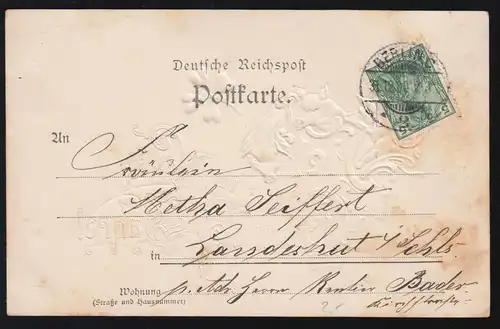 Deutsche Reichspost
Postkarte.
BERLIN
An
Fräulein
Metha Seiffert
in Landeshut i/Schls.
Wohnung p. Adr. Herrn Rentier Bader
(Straße und Hausnummer)